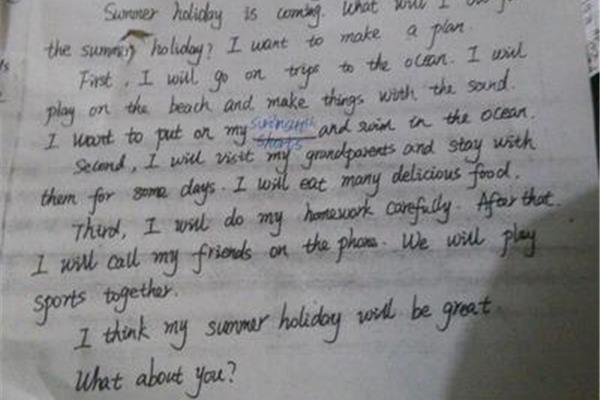 Summer holiday is coming. What will I
the summer holiday? I want to make a plan.
First, I will go on trips to the ocean. I will
play on the beach and make things with the sand.
I want to put on my shorts and swim in the ocean.
Second, I will visit my grandparents and stay with
them for some days. I will eat many delicious food.
Third, I will do my homework carefully. After that.
I will call my friends on the phone. We will play
sports together.
I think my summer holiday will be great.
What about you?